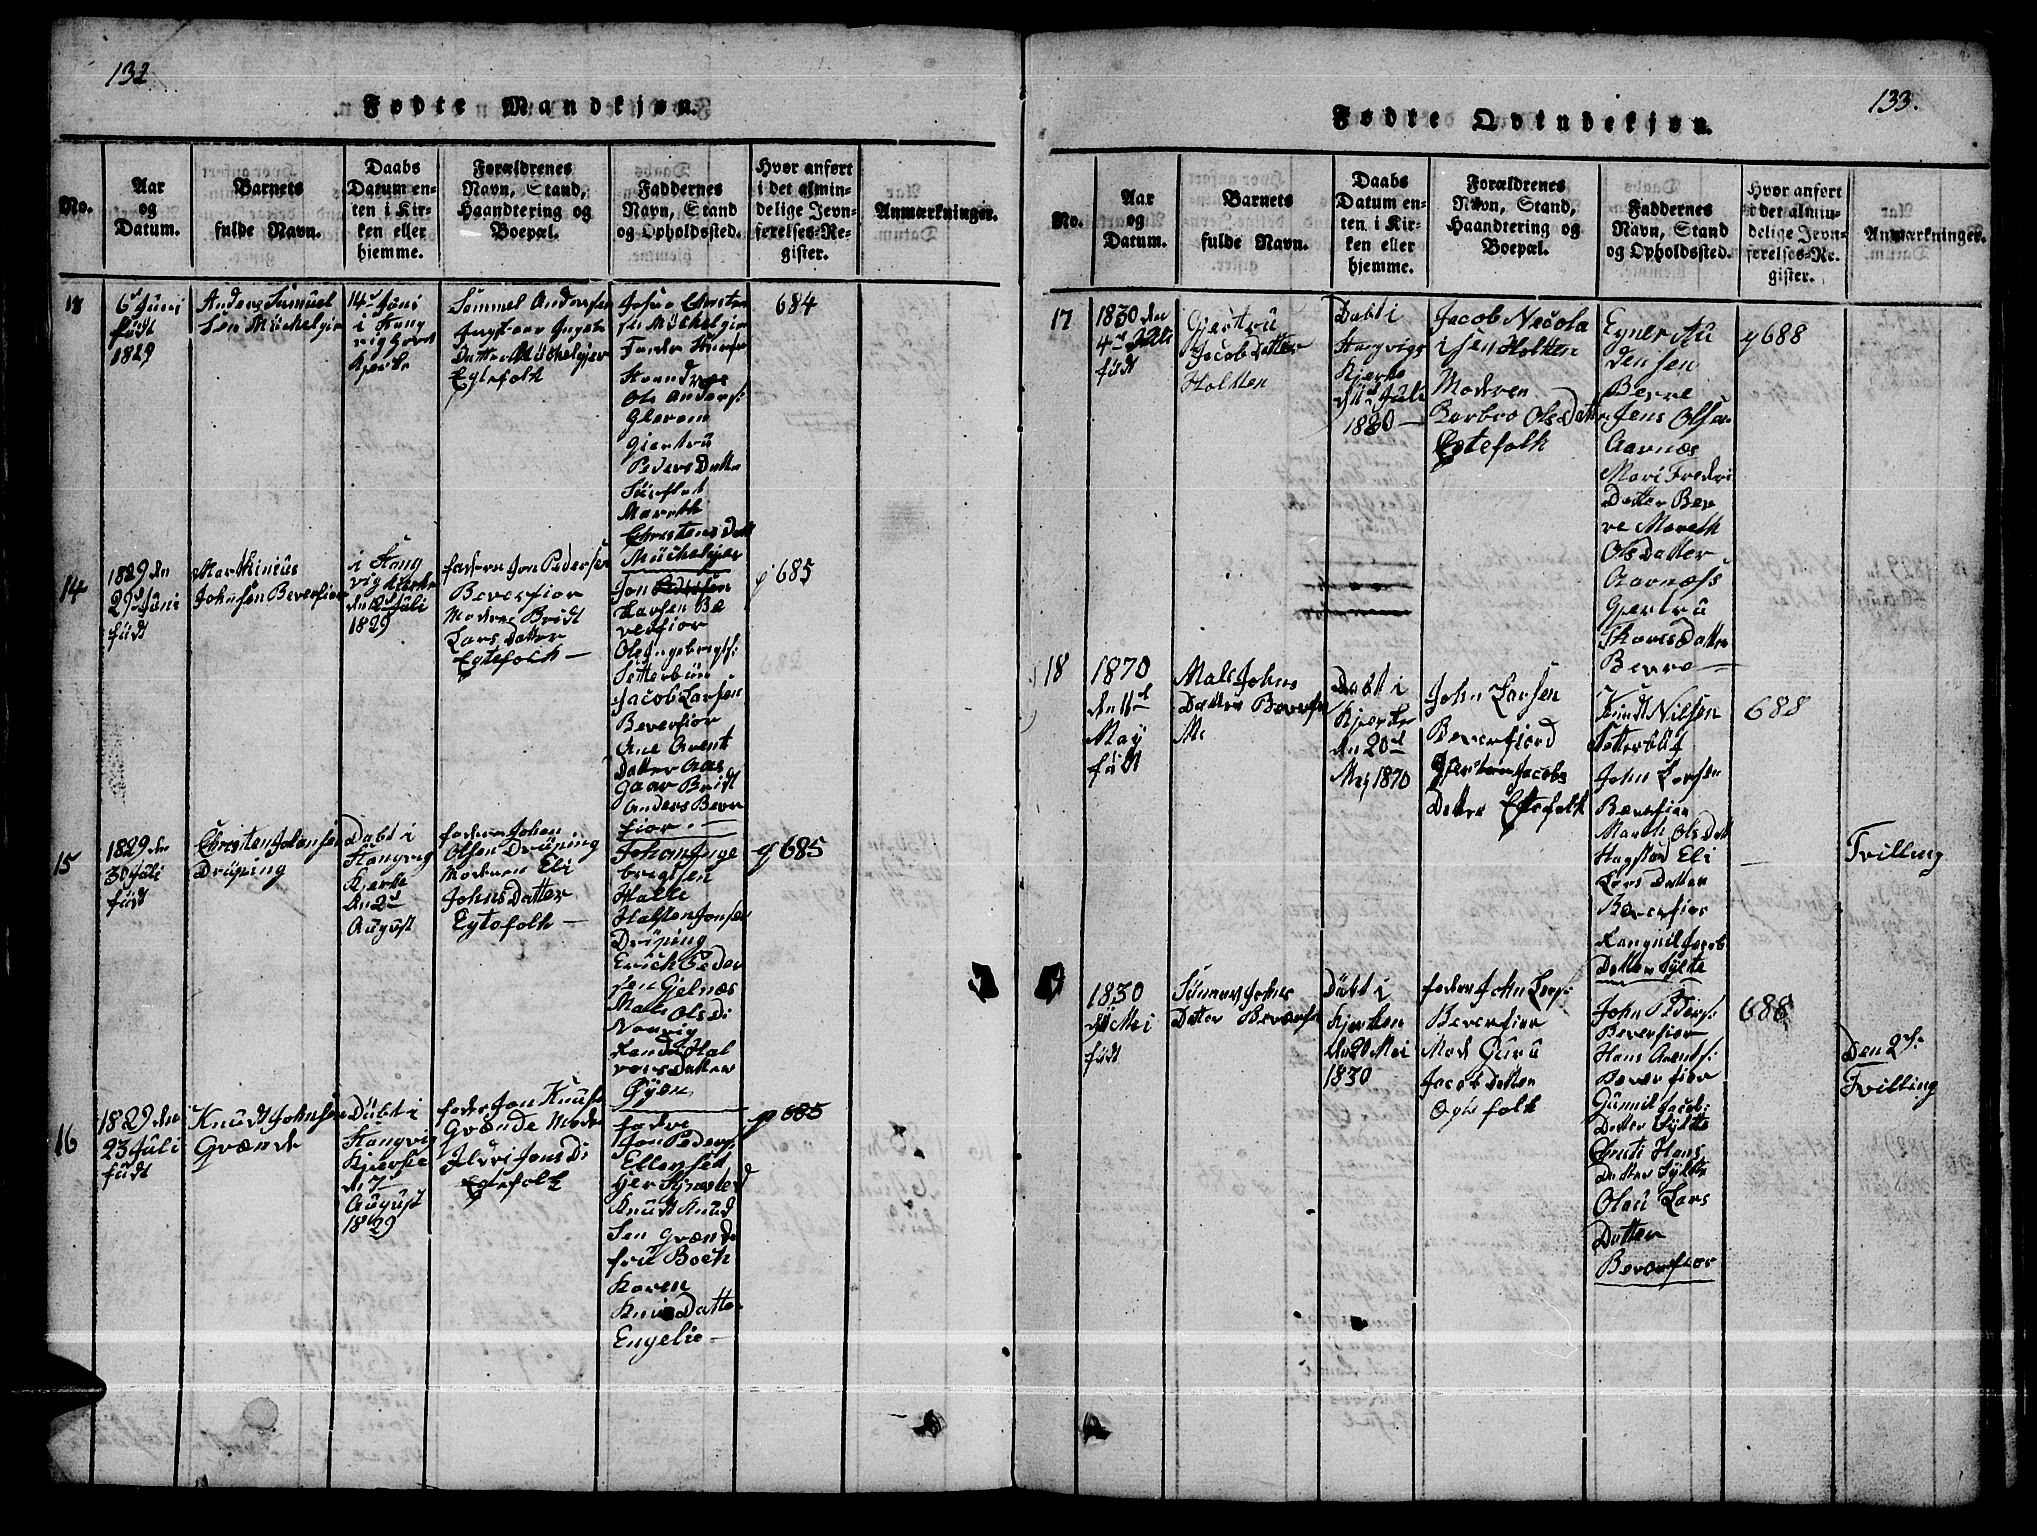 132
Fødte Mandkjøn.
No.
Aar
og
Datum.
Barnets
fulde Navn.
Daabs
Datum en-
ten i Kir-
ken eller
hjemme.
Forældrenes
Navn, Stand,
Haandtering og
Boepæl.
Faddernes
Navn, Stand
og Opholdssted.
Hvor anført
i det almin-
delige Jevn-
førelses-Re-
gister.
Anmærkninger.
6 Juni
födt
1829
Anders Samuel
Sen Möchelgier
14 Juni
i Stang
Kjerke
Sammel Andersen
Datter Möchelgier
Egtefolk
Ole Anders:
Giertru
Peders Datte
Mareth
Christens Datt
Möchelgier
684
14
1829 den
29 Juni
födt
Marthinius
Johnsen Beverfior
i Stang
vig Kierke
den Juli
1829
faderen Jon Pedersen
Beverfior
Modren Bridt
Lars Datter
Egtefolk
Jon
Larsen Be
verfior
Ole Ingebregts:
Setterbüe
Jacob Larsen
Beverfior
Ane Arent
Datter Aas
Gaar Bridt
Anders Bever
fior.
p 685
15
1829 den
30 Juli
födt
Christen Johansen
Dröping
Dabt i
Stangvig
Kjerke
den 2
August
faderen Johan
Olsen Dröping
Moderen Eli
Johns Datter
Egtefolk
Johan Inge
bregtsen
Halle
Halsten Jonsen
Dröping
Erich Peder
sen Gjelnæs
Mali Ols D:
Nauvig
Randi Hal
vors Datter
Øyen
p 685
16
1829 den
23 Juli
födt
Knudt Johnsen
Grænde
Döbt i
Stangvig
Kjerke
d: 7
August
1829
fader Jon Knuts
Grænde Moder
Jldri Jons D:
Egtefolk
fadre
Jon Peders
Knudt Knud
Sen Grænde
fru Boch
Karen
Datter
Engelie
p 685
133.
Fødte Qvindekjøn.
No.
Aar
og
Datum.
Barnets
fulde Navn.
Daabs
Datum en-
ten i Kir-
ken eller
hjemme.
Forældrenes
Navn, Stand,
Haandtering og
Boepæl.
Faddernes
Navn, Stand
og Opholdssted.
Hvor anført
i det almin-
delige Jevn-
førelses-Re-
gister.
Anmærkninger.
17
1830 den
4 Juli
födt
Gjertru
Jacob Datter
Holtten
Dabt i
Stangvigs
Kjerke
d 11 Juli
1830
Jacob Necola
isen Holtten
Modren
Barbro Ols Datter
Egtefolk
Egner Au
densen
Bevre
Jens Olsen
Aarnæs
Mari Fredri
Datter Bev
re Mareth
Ols Datter
Aarnæss
Gjertru
Skores Datter
Bevre
p 688
18
1870
den 11
May
födt
Mali Johns
Datter Beverfior
Dabt i
Kjerke
den 20
Mej 1870
John Larsen
Beverfiord
Jacobs
Datter Egtefolk
Knudt Nilsen
Setterbüe
John Larsen
Beverfior
Mareth Ols Datt
Hagstad Eli
Lars Datter
Beverfior
Rangnil Jacob
Datter Sylte
688
Tvilling
1830
Mei
födt
Sünnev Johns
Datter Beverfi
Döbt i
Kjerken
den 20 Mei
1830
faderen John Lars:
Beverfior
Mod Guru
Jacob Datter
Egte folk
John Peders:
Beverfior
Hans Arents:
Beverfior
Gunnil Jacob:
Datter Sylte
Hans
Datter Sylte
Olau Lars
Datter
Beverfior
688
Den 2de
Tvilling